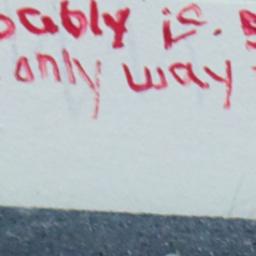 obably is.
only way